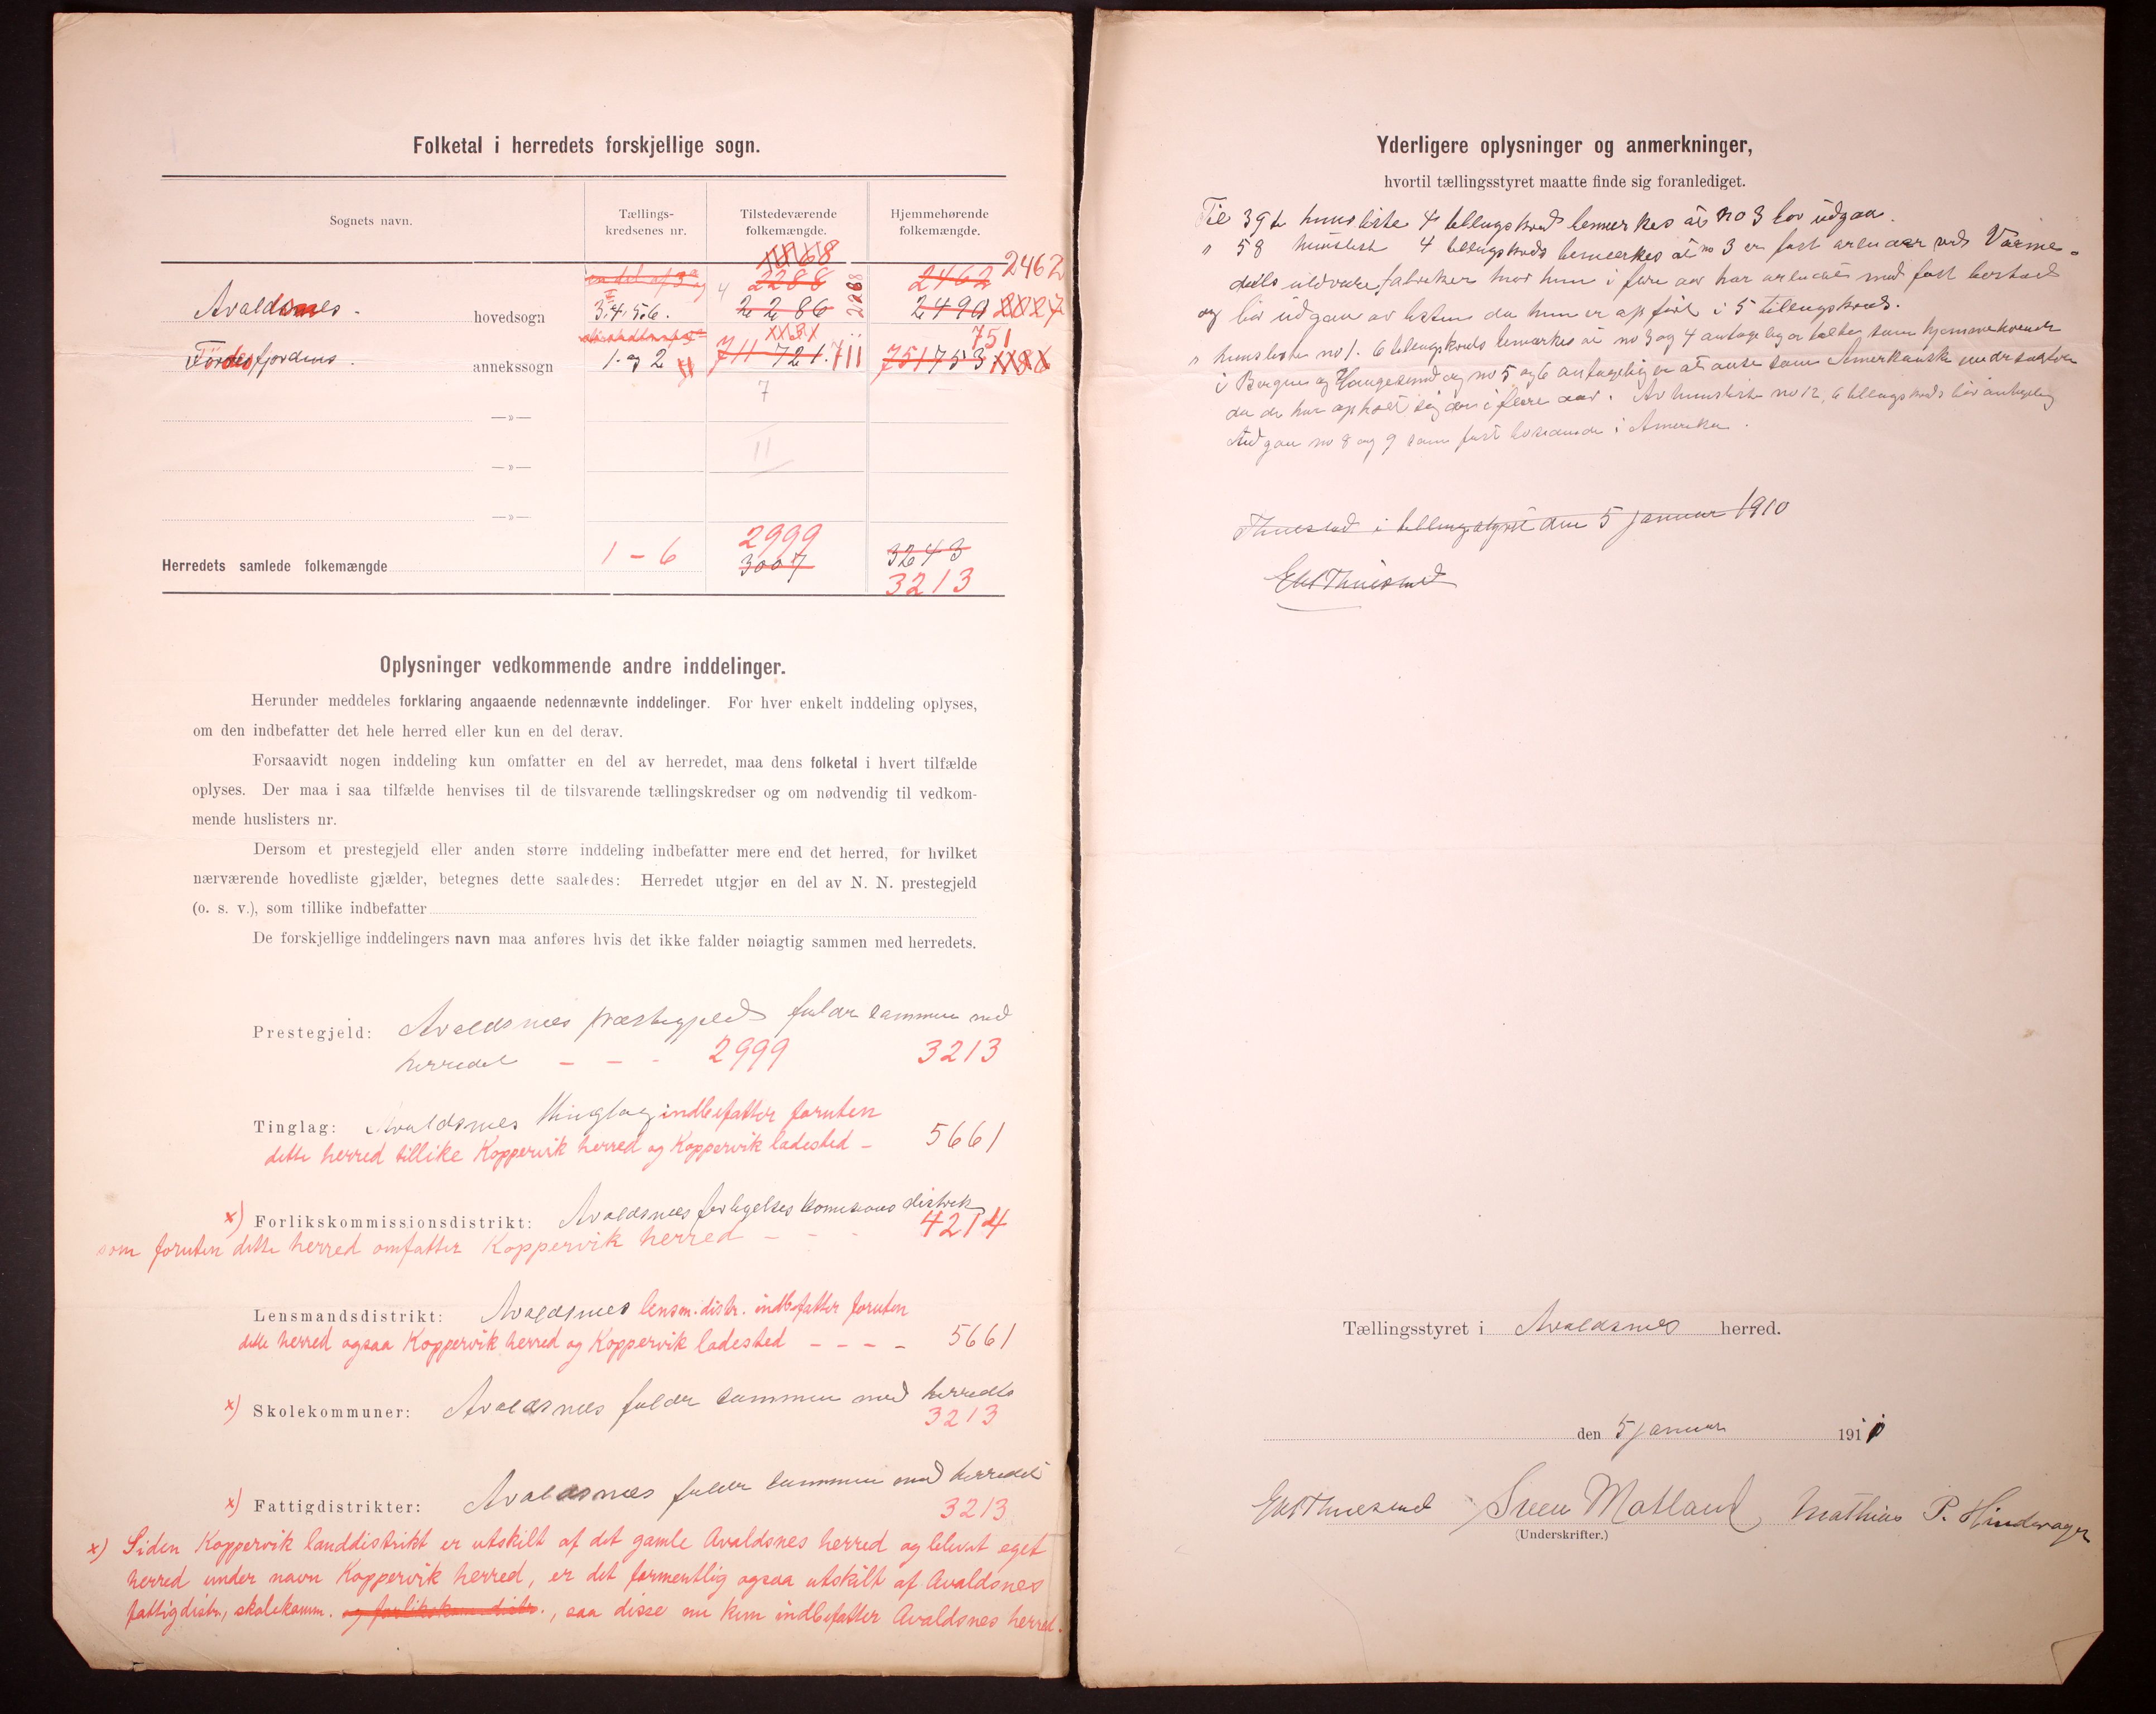 Folketal i herredets forskjellige sogn.
Sognets navn.
Tællings-
kredsenes nr.
Tilstedeværende
folkemængde.
Hjemmehørende
folkemængde.
2288
2462 2462
Avaldsnes - hovedsogn 3.4.5.6. 2286 2268 2490
751
Førdesfjordens. annekssogn 1. og 2 711 721. 711 751 753
7
—»—
11
—»—
—»—
2999
Herredets samlede folkemængde 1 – 6 3007 3243
3213
Oplysninger vedkommende andre inddelinger.
Herunder meddeles forklaring angaaende nedennævnte inddelinger. For hver enkelt inddeling oplyses,
om den indbefatter det hele herred eller kun en del derav.
Forsaavidt nogen inddeling kun omfatter en del av herredet, maa dens folketal i hvert tilfælde
oplyses. Der maa i saa tilfælde henvises til de tilsvarende tællingskredser og om nødvendig til vedkom-
mende huslisters nr.
Dersom et prestegjeld eller anden større inddeling indbefatter mere end det herred, for hvilket
nærværende hovedliste gjælder, betegnes dette saaledes: Herredet utgjør en del av N. N. prestegjeld
(o. s. v.), som tillike indbefatter
De forskjellige inddelingers navn maa anføres hvis det ikke falder nøiagtig sammen med herredets.
Prestegjeld: Avaldsnes præstegjeld falder sammen med
herredet – – – 2999 3213
Tinglag: Avaldsnes thinglag indbefatter foruten
dette herred tillike Koppervik herred og Koppervik ladested – 5661
x) Forlikskommissionsdistrikt: Avaldsnes forligelses komisions distrikt
4214
som foruten dette herred omfatter Koppervik herred – – –
Lensmandsdistrikt: Avaldsnes lensm. distr. indbefatter foruten
dette herred ogsaa Koppervik herred og Koppervik ladested – – – – 5661
x) Skolekommuner: Avaldsnes falder sammen med herredets
3213
x) Fattigdistrikter: Avaldsnes falder sammen med herredets
3213
x) Siden Koppervik landdistrikt er utskilt af det gamle Avaldsnes herred og blevet eget
herred under navn Koppervik herred, er det formentlig ogsaa utskilt af Avaldsnes
fattigdistr., skolekomm. og forlikskom. distr., saa disse nu kun indbefatter Avaldsnes herred.
Yderligere oplysninger og anmerkninger,
hvortil tællingsstyret maatte finde sig foranlediget.
Til 39te husliste 4 tellingskreds bemerkes at no 3 bør udgaa.
" 58 husliste 4 tellingskreds bemerkes at no 3 er fast arbudaar ved Varme-
dals uldvarefabriker hvor hun i flere aar har arbudet med fast bosted
og bør udgaa av listen da hun er opført i 5 tellingskreds.
" husliste no 1. 6 tellingskreds bemærkes at no 3 og 4 antagelig er talte som hjemmehørende
i Bergen og Haugesund og no 5 og 6 antagelig er at anse som Amerikanske undersaatter
da de har opholt sig der i flere aar. Av husliste no 12, 6 tellingskreds bør antagelig
udgaa no 8 og 9 som fast bosidende i Amerika.
Thuestad i tellingstyret den 5 januar 1910
Tællingsstyret i Avaldsnes herred.
den 5 januar 1911
Sven Matland Mathias P. Hindevager
(Underskrifter.)